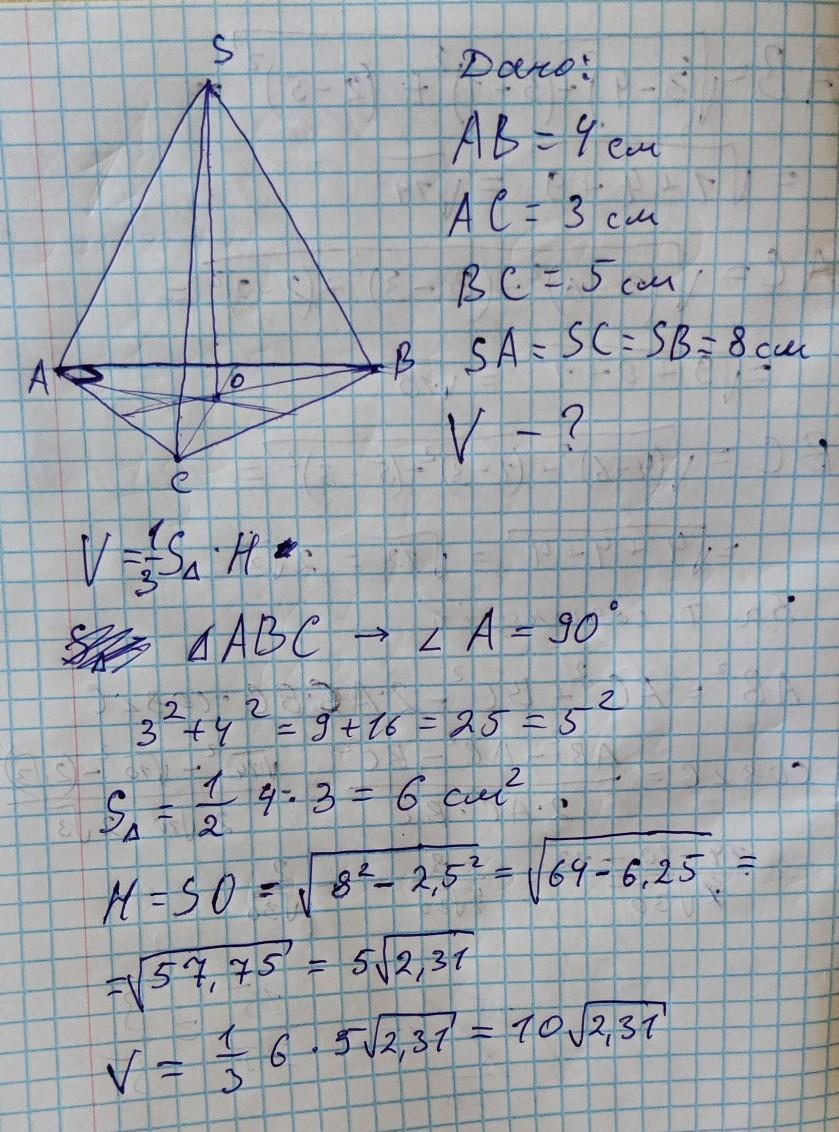 S
Дано:
AB = 4 см
AC = 3 см
BC = 5 см
SA = SC = SB = 8 см
A
O
B
V - ?
C
V = 1/3 S△ · H
△ABC → ∠A = 90°
3² + 4² = 9 + 16 = 25 = 5²
S△ = 1/2 4 · 3 = 6 см²
H = SO = √(8² - 2,5²) = √(64 - 6,25) =
= √57,75 = 5√2,31
V = 1/3 6 · 5√2,31 = 10√2,31